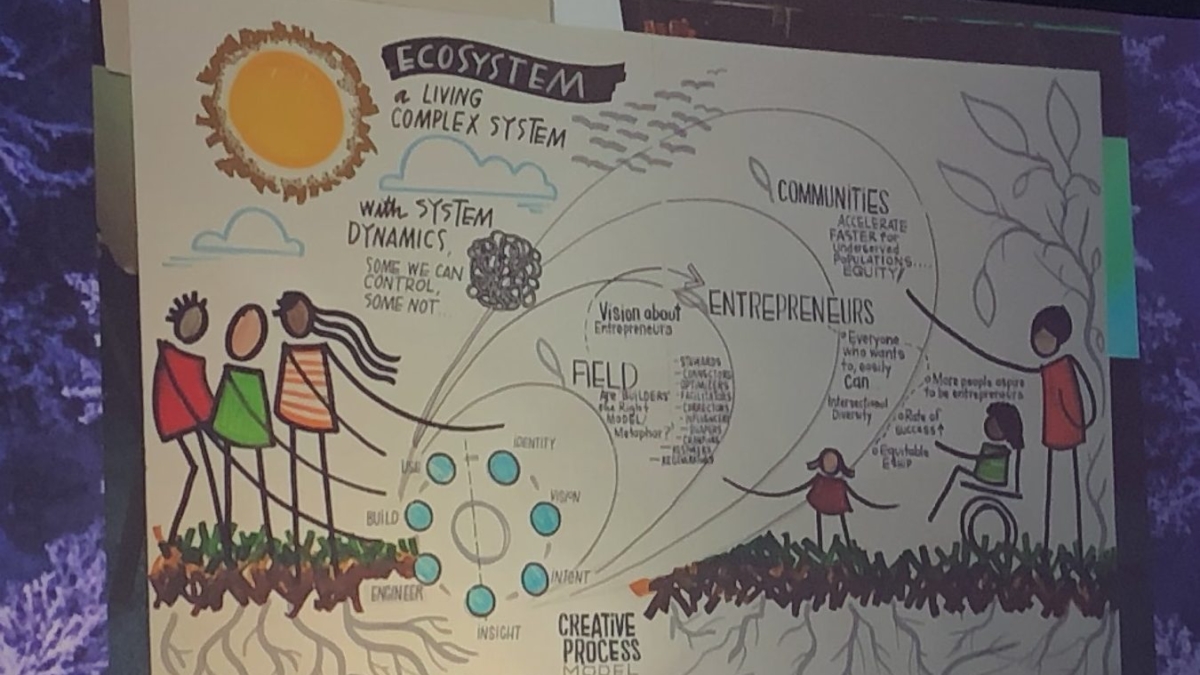 ECOSYSTEM
a LIVING
COMPLEX SYSTEM
with SYSTEM
DYNAMICS,
SOME WE CAN
CONTROL,
SOME NOT...
COMMUNITIES
ACCELERATE
FASTER for
Underserved
POPULATIONS....
EQUITY!
ENTREPRENEURS
Everyone
who wants
to, easily
Can
Intersectional
Diversity
More people aspire
to be entrepreneurs
Rate of
success↑
Equitable
Vision about
Entrepreneurs
FIELD
Are "BUILDERS"
the Right
MODEL/
Metaphor?
- STEWARDS
- CONNECTORS
- OPTIMIZERS
- FACILITATORS
- INFLUENCERS
USE
IDENTITY
VISION
INTENT
INSIGHT
ENGINEER
BUILD
CREATIVE
PROCESS
MODEL